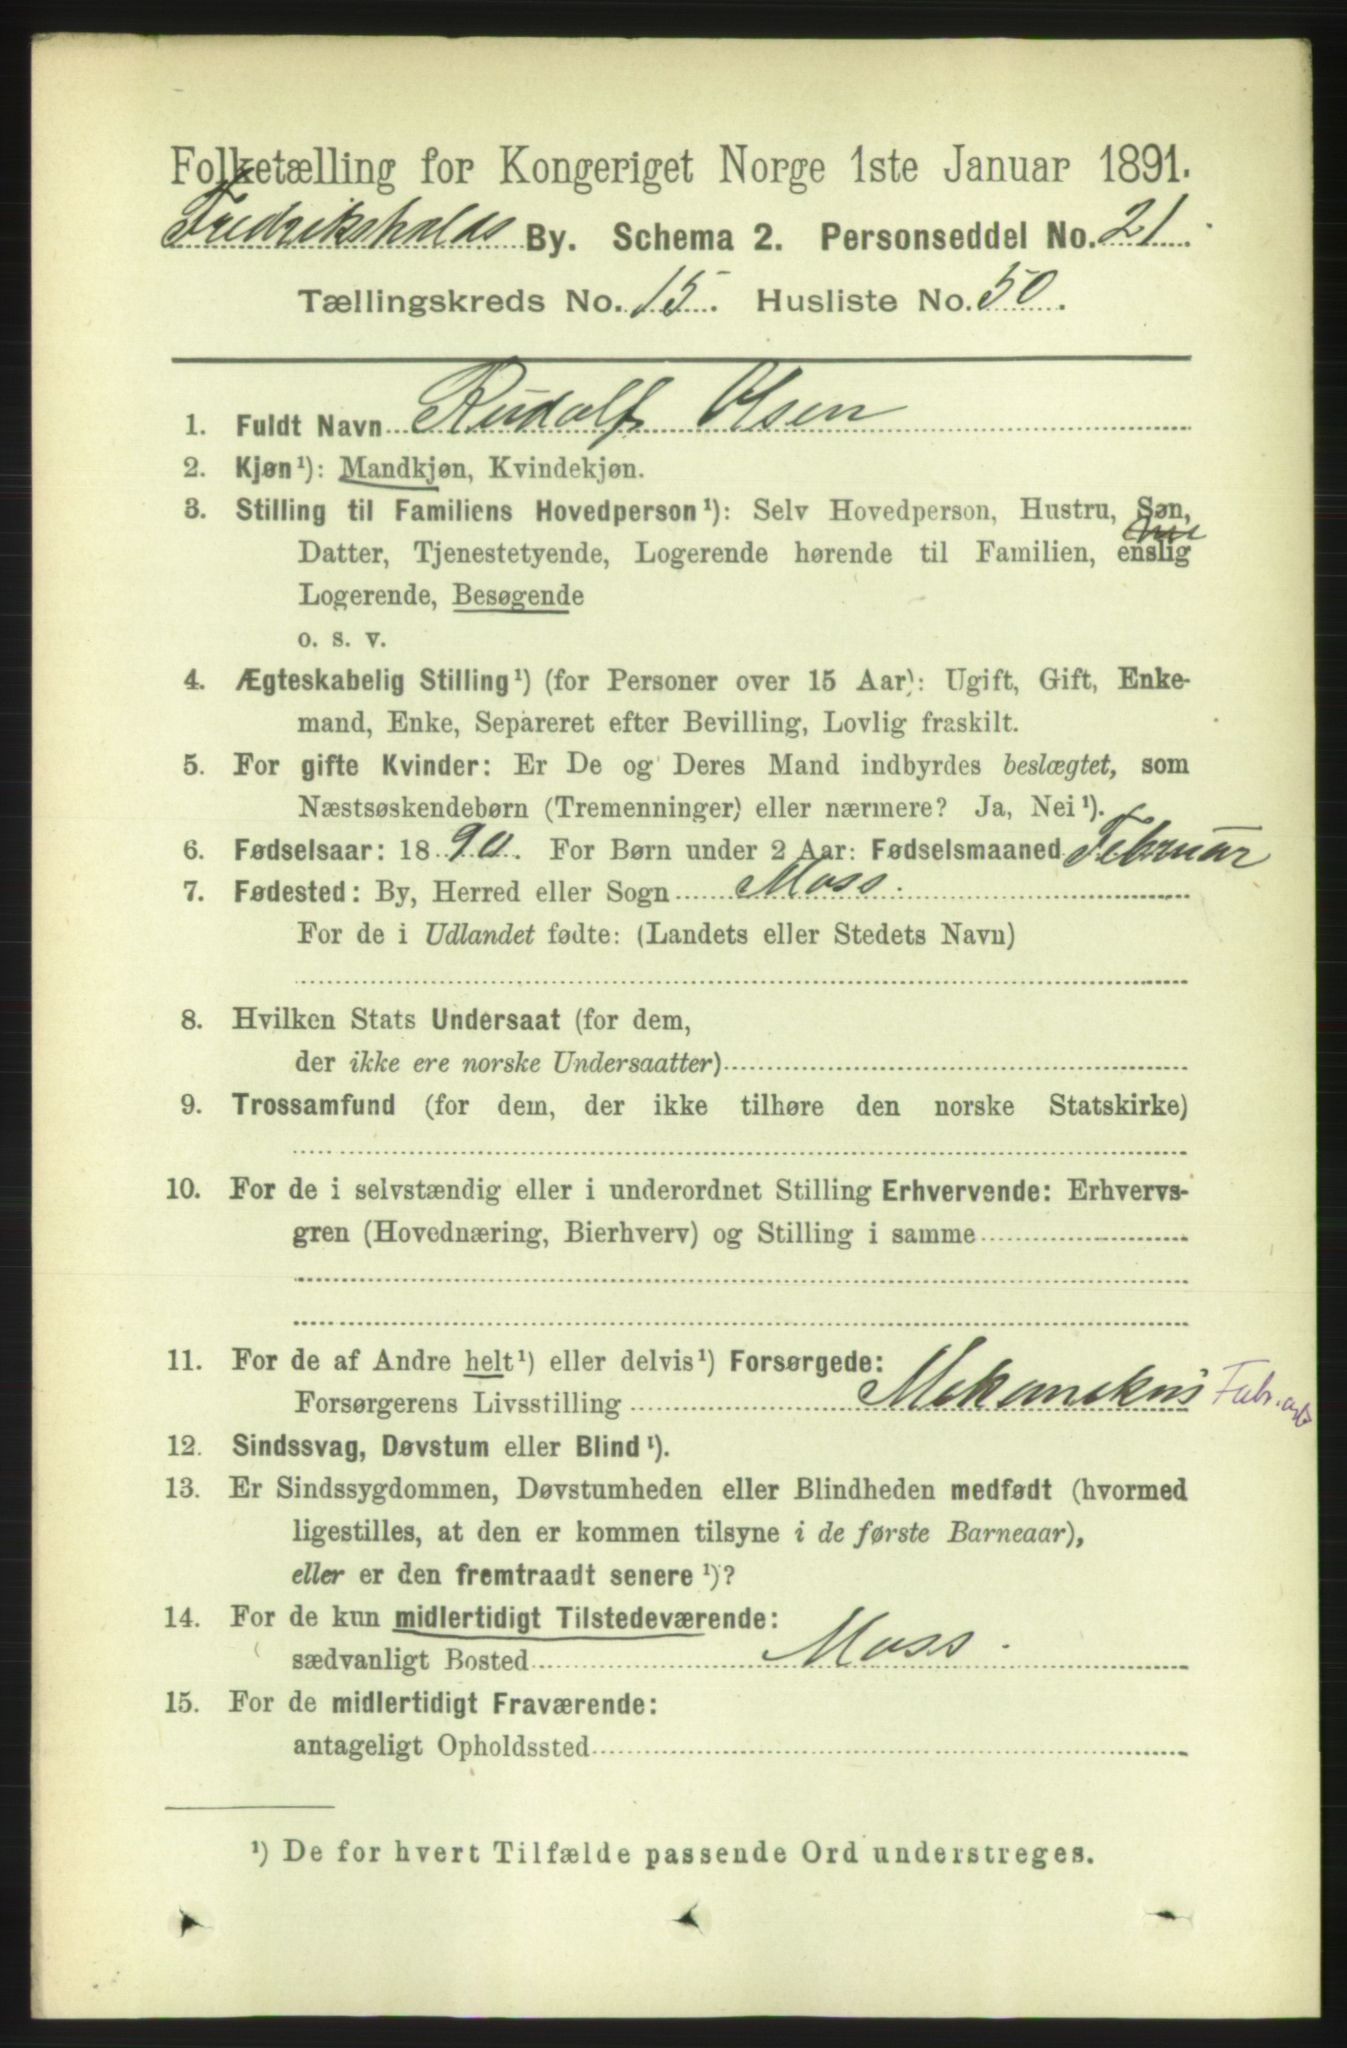 Folketælling for Kongeriget Norge 1ste Januar 1891.
Fredrikshalds By. Schema 2. Personseddel No. 21.
Tællingskreds No. 15. Husliste No. 50.
1. Fuldt Navn Rudolf Olsen
2. Kjøn¹): Mandkjøn, Kvindekjøn.
3. Stilling til Familiens Hovedperson¹): Selv Hovedperson, Hustru, Søn,
Datter, Tjenestetyende, Logerende hørende til Familien, enslig
Logerende, Besøgende
o. s. v.
4. Ægteskabelig Stilling¹) (for Personer over 15 Aar): Ugift, Gift, Enke-
mand, Enke, Separeret efter Bevilling, Lovlig fraskilt.
5. For gifte Kvinder: Er De og Deres Mand indbyrdes beslægtet, som
Næstsøskendebørn (Tremenninger) eller nærmere? Ja, Nei¹).
6. Fødselsaar: 1890. For Børn under 2 Aar: Fødselsmaaned Februar
7. Fødested: By, Herred eller Sogn Moss.
For de i Udlandet fødte: (Landets eller Stedets Navn)
8. Hvilken Stats Undersaat (for dem,
der ikke ere norske Undersaatter)
9. Trossamfund (for dem, der ikke tilhøre den norske Statskirke)
10. For de i selvstændig eller i underordnet Stilling Erhvervende: Erhvervs-
gren (Hovednæring, Bierhverv) og Stilling i samme
11. For de af Andre helt¹) eller delvis¹) Forsørgede:
Forsørgerens Livsstilling Mekanikus Fabr. arb
12. Sindssvag, Døvstum eller Blind¹).
13. Er Sindssygdommen, Døvstumheden eller Blindheden medfødt (hvormed
ligestilles, at den er kommen tilsyne i de første Barneaar),
eller er den fremtraadt senere¹)?
14. For de kun midlertidigt Tilstedeværende:
sædvanligt Bosted Moss.
15. For de midlertidigt Fraværende:
antageligt Opholdssted
¹) De for hvert Tilfælde passende Ord understreges.